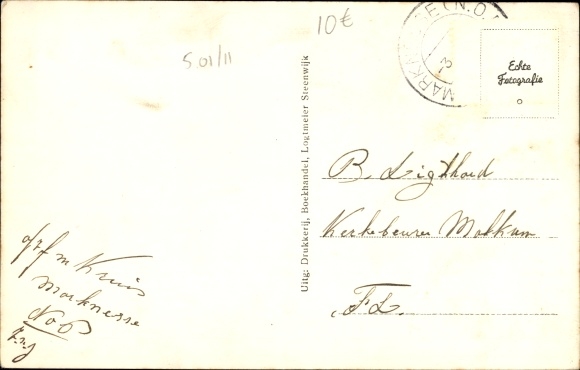 10€
5.01/11
MARKNESSE (N.O.
Echte
Fotografie
Uitg: Drukkerij, Boekhandel, Logtmeier Steenwijk
B. Ligthord
Kerkebeuren Makkum
FL.
m Kruis
Marknesse
NoP